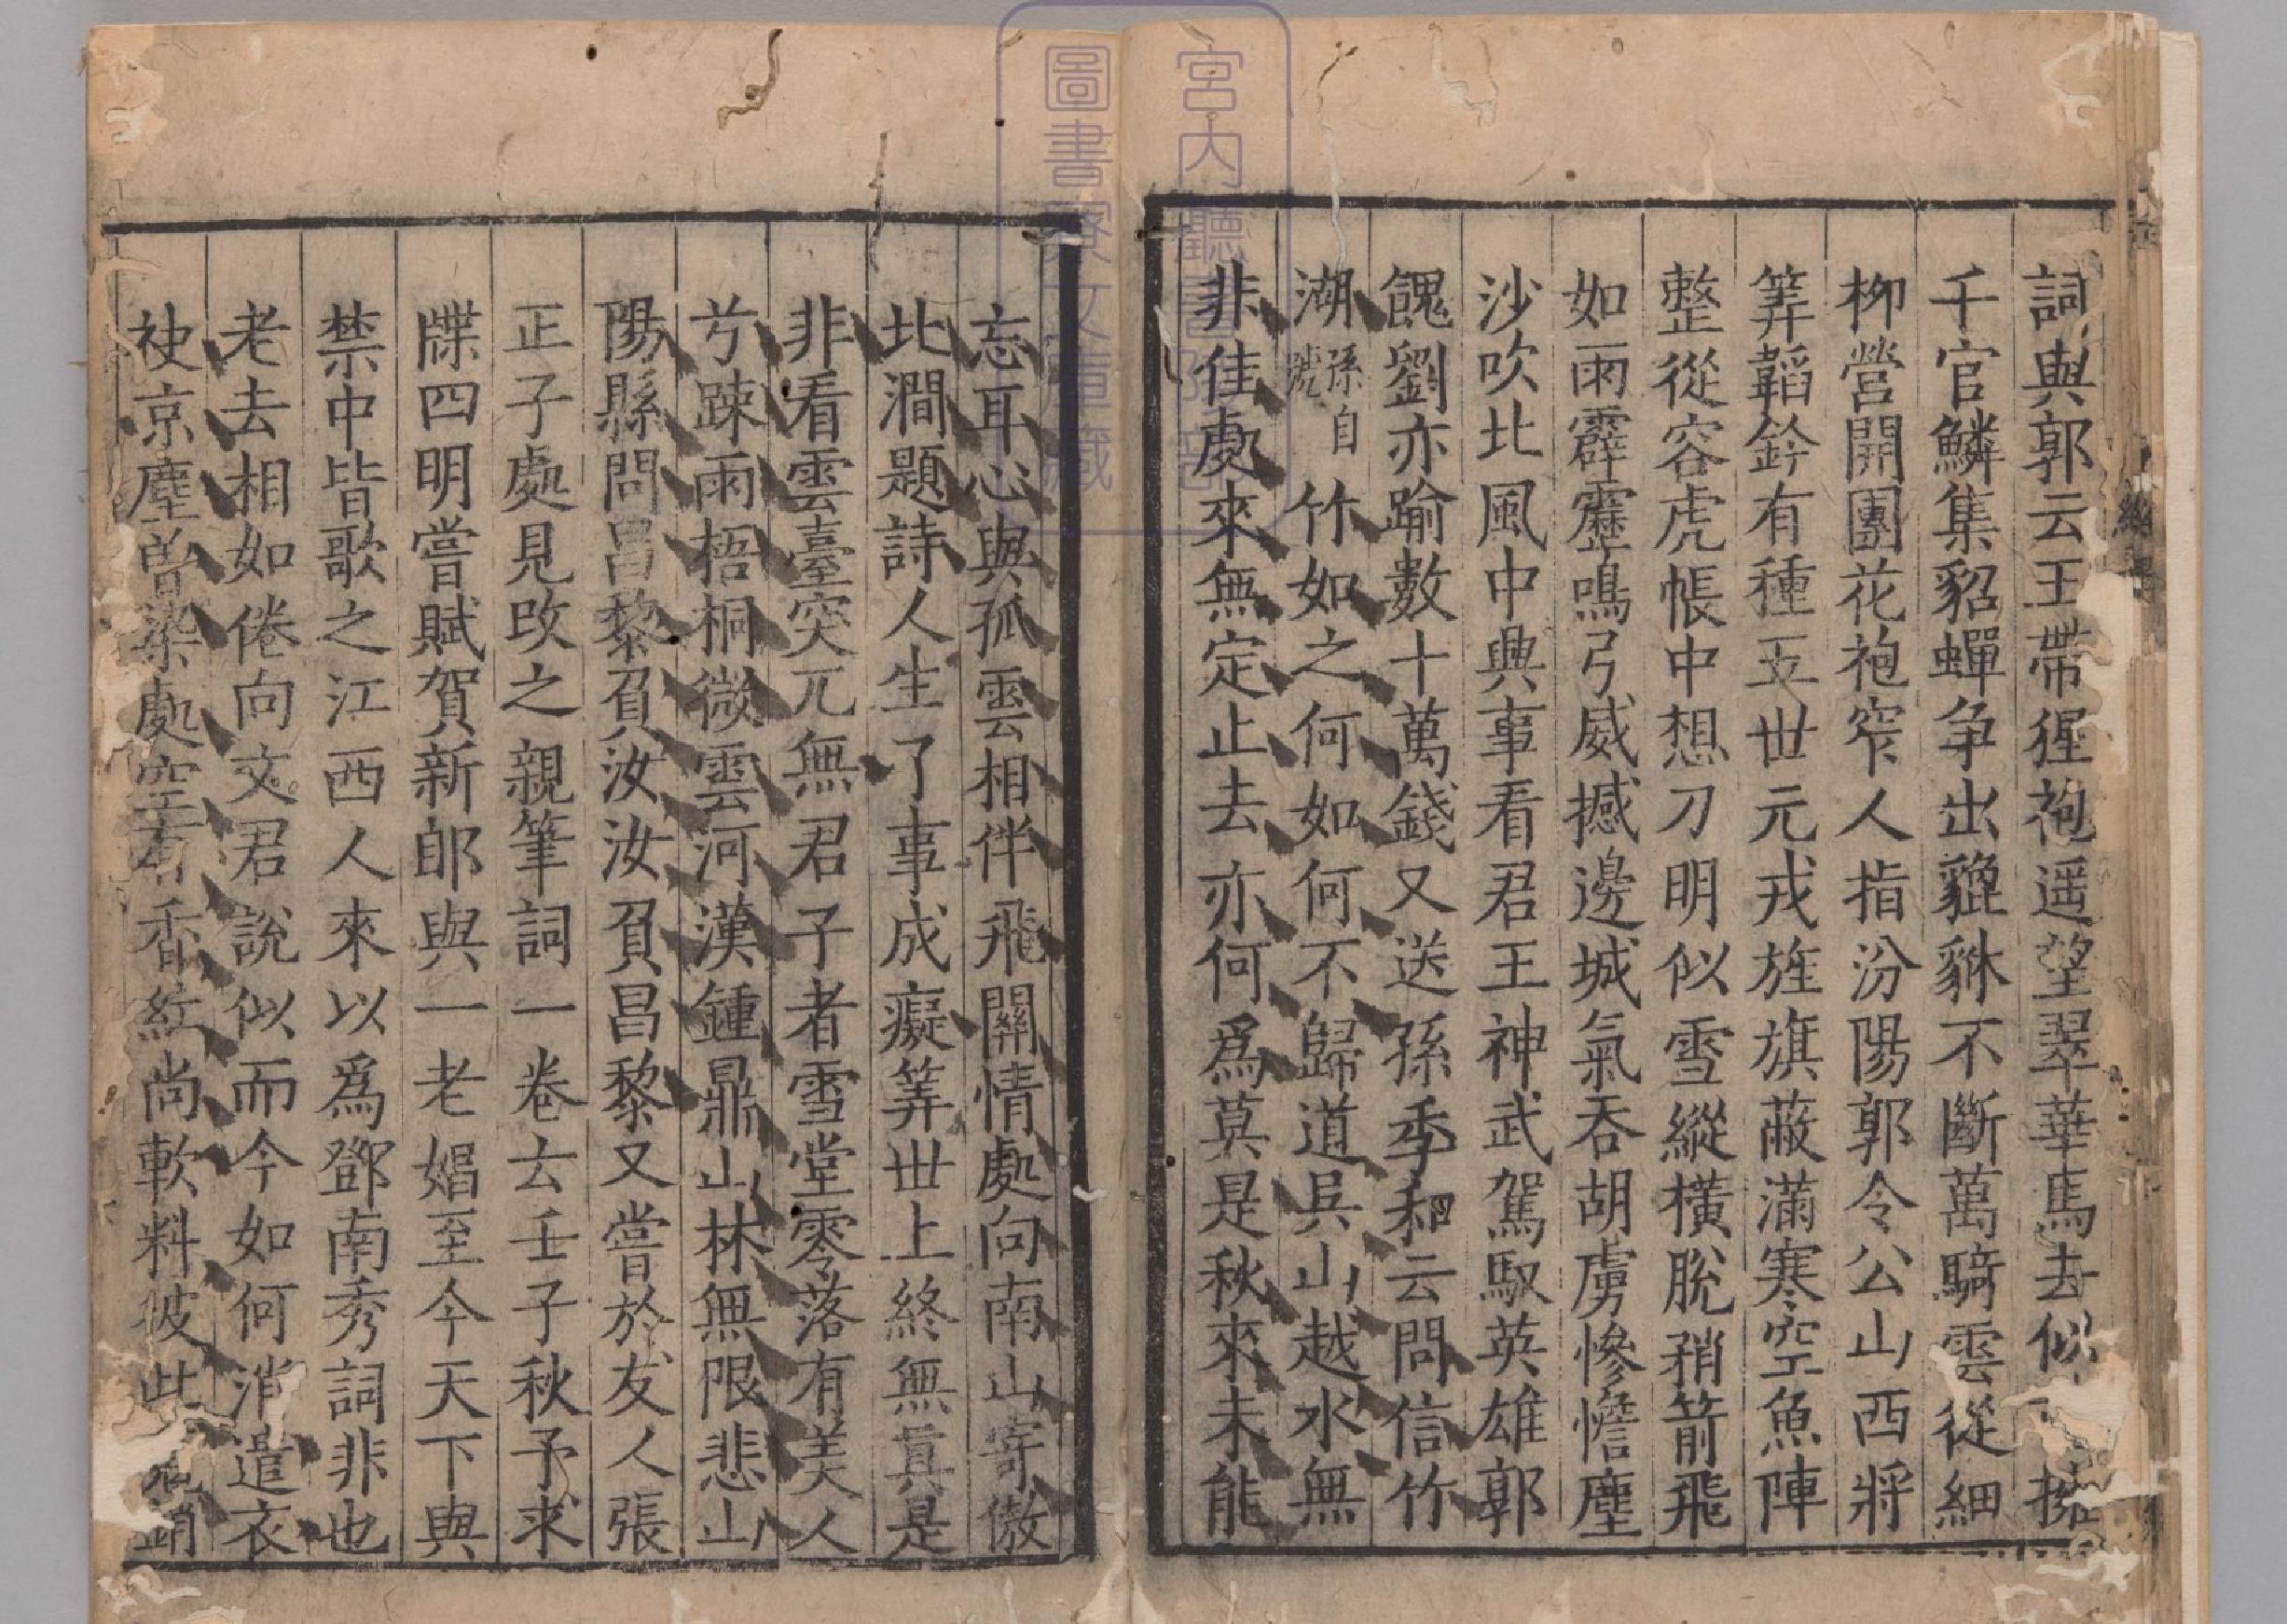 詞與郭云玉帶猩袍遥望翠華馬去似擁
千官鱗集貂蟬争出貔貅不斷萬騎雲從細
柳營開團花袍窄人指汾陽郭令公山西將
筭韜鈐有種五世元戎旌旗蔽滿寒空魚陣
整從容虎帳中想刀明似雪縱橫脫稍箭飛
如雨霹靂鳴弓威撼邊城氣吞胡虜慘憺塵
沙吹北風中興事看君王神武駕馭英雄郭
餽劉亦踰數十萬錢又送孫季和云問信竹
湖孫自號竹如之何如何不歸道吳山越水無
非佳處來無定止去亦何爲莫是秋來未能
忘耳心與孤雲相伴飛關情處向南山寄傲
北澗題詩人生了事成癡筭世上終無真是
非看雲臺突兀無君子者雪堂零落有美人
兮踈雨梧桐微雲河漢鍾鼎山林無限悲山
陽縣問昌黎負汝汝負昌黎又嘗於友人張
正子處見攺之親筆詞一卷云壬子秋予求
牒四明嘗賦賀新郎與一老娼至今天下與
禁中皆歌之江西人來以爲鄧南秀詞非也
老去相如倦向文君說似而今如何消遣衣
袂京塵曽染處空有香紅尚軟料彼此魂銷
宮内廳書陵部
圖書寮文庫藏